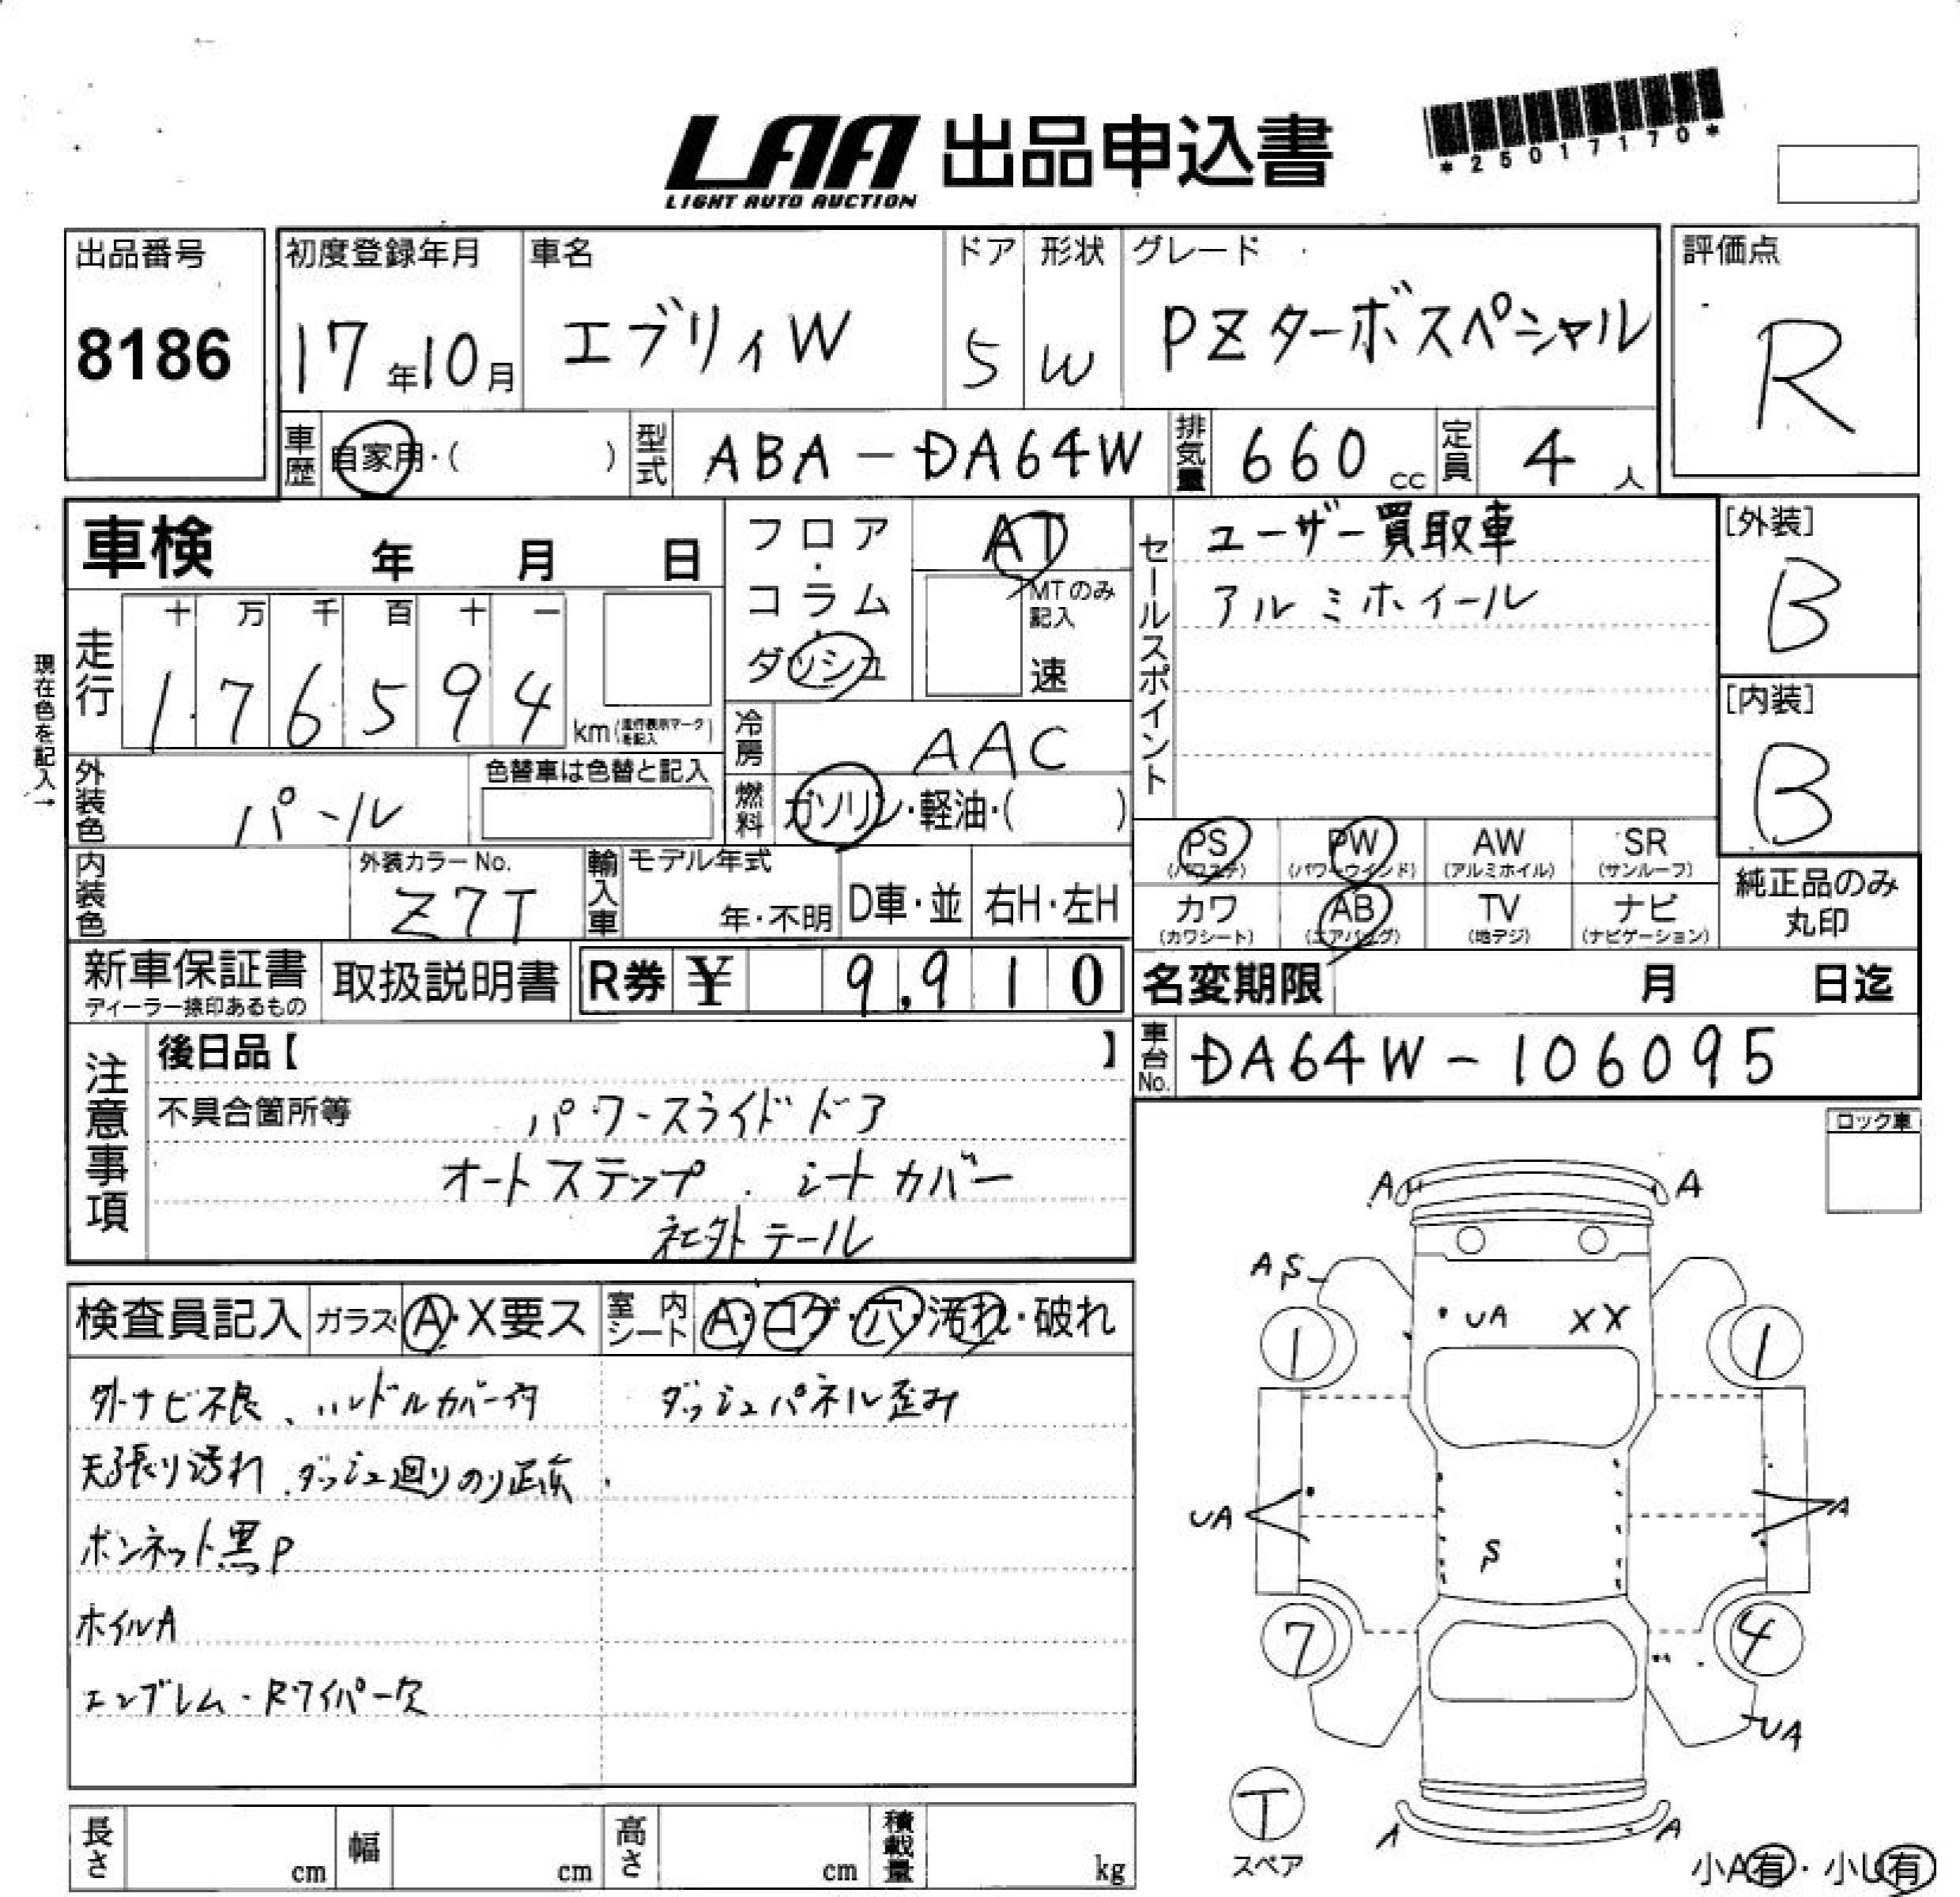 LAA 出品申込書
LIGHT AUTO AUCTION
*25017170*
出品番号
8186
初度登録年月
17年10月
車名
エブリィW
ドア
5
形状
W
グレード
PZターボスペシャル
評価点
R
車歴
自家用・( )
型式
ABA-DA64W
排気量
660cc
定員
4人
車検 年 月 日
フロア・コラム・ダッシュ
AT
MTのみ記入
速
セールスポイント
ユーザー買取車
アルミホイール
[外装]
B
[内装]
B
現在色を記入→
走行
十 万 千 百 十 一
1 7 6 5 9 4
km(走行表示マークを記入)
冷房
AAC
外装色
パール
色替車は色替と記入
燃料
ガソリン・軽油・( )
内装色
外装カラーNo.
Z7T
輸入車
モデル年式
年・不明
D車・並
右H・左H
PS (パワステ)
PW (パワーウインド)
AW (アルミホイル)
SR (サンルーフ)
カワ (カワシート)
AB (エアバッグ)
TV (地デジ)
ナビ (ナビゲーション)
純正品のみ丸印
新車保証書
ディーラー捺印あるもの
取扱説明書
R券 ¥ 9,910
名変期限 月 日迄
車台No.
DA64W-106095
注意事項
後日品【 】
不具合箇所等
パワースライドドア
オートステップ . シートカバー
社外テール
ロック車
検査員記入
ガラス A・X要ス
室内シート A・コゲ・穴・汚れ・破れ
外ナビ不良、ハンドルカバー付
ダッシュパネル歪み
天張り汚れ、ダッシュ廻りのり跡
ボンネット黒P
ホイルA
エンブレム・Rワイパー欠
A A
AS
UA XX
1 1
UA A
S
7 4
UA
T
スペア
A A
小A有・小U有
長さ cm
幅 cm
高さ cm
積載量 kg